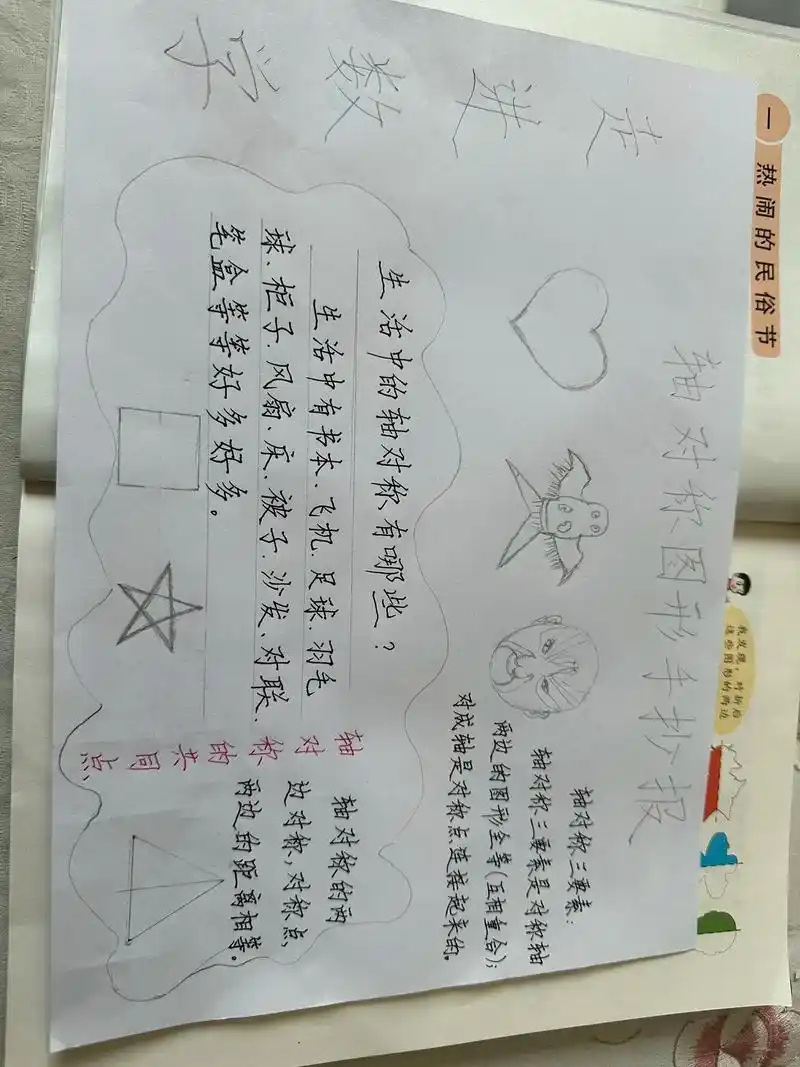 一 热闹的民俗节
我发现，对折后
这些图形的两边
轴对称图形手抄报
走进数学
轴对称三要素：
轴对称三要素是对称轴
两边的图形全等(互相重合)；
对成轴是对称点连接起来的。
生活中的轴对称有哪些？
生活中有书本、飞机、足球、羽毛
球、柜子、风扇、床、被子、沙发、对联、
笔盒等等好多好多。
轴对称的共同点、
轴对称的两
边对称，对称点、
两边的距离相等。